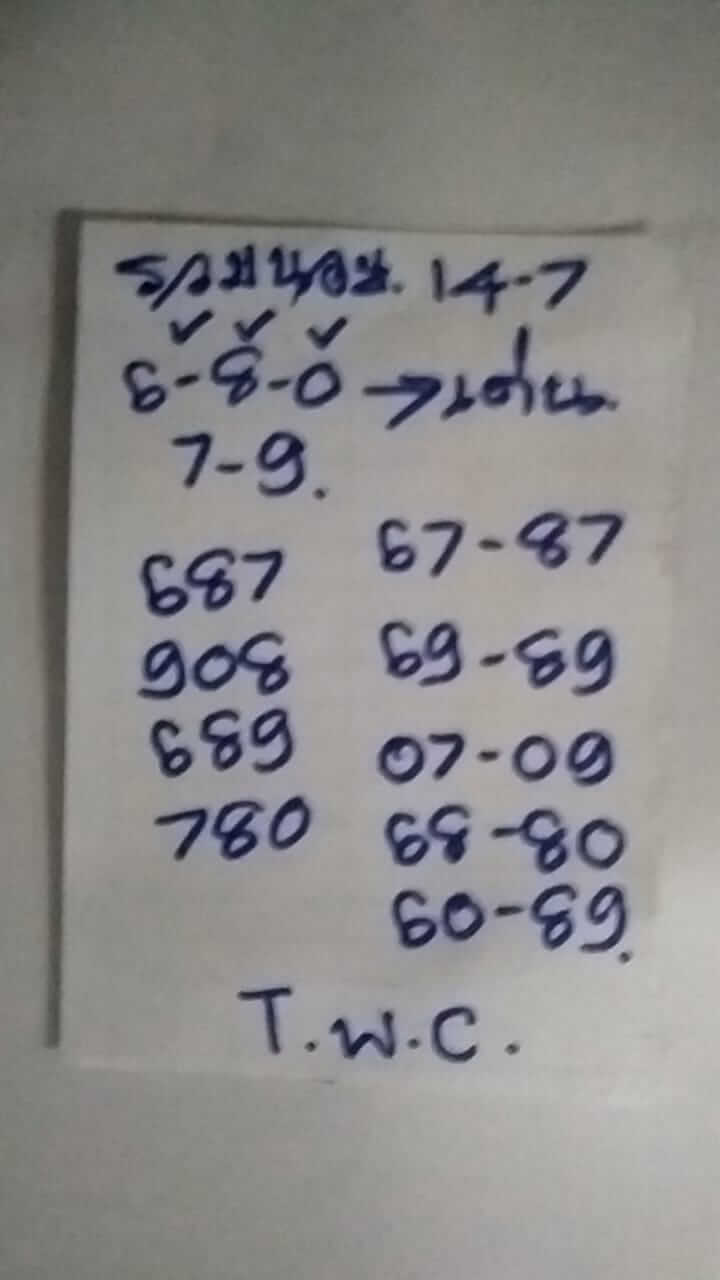 6-8-0 → เด่น
7-9.
687 67-87
908 69-89
689 07-09
780 68-80
60-89.
T.W.C.